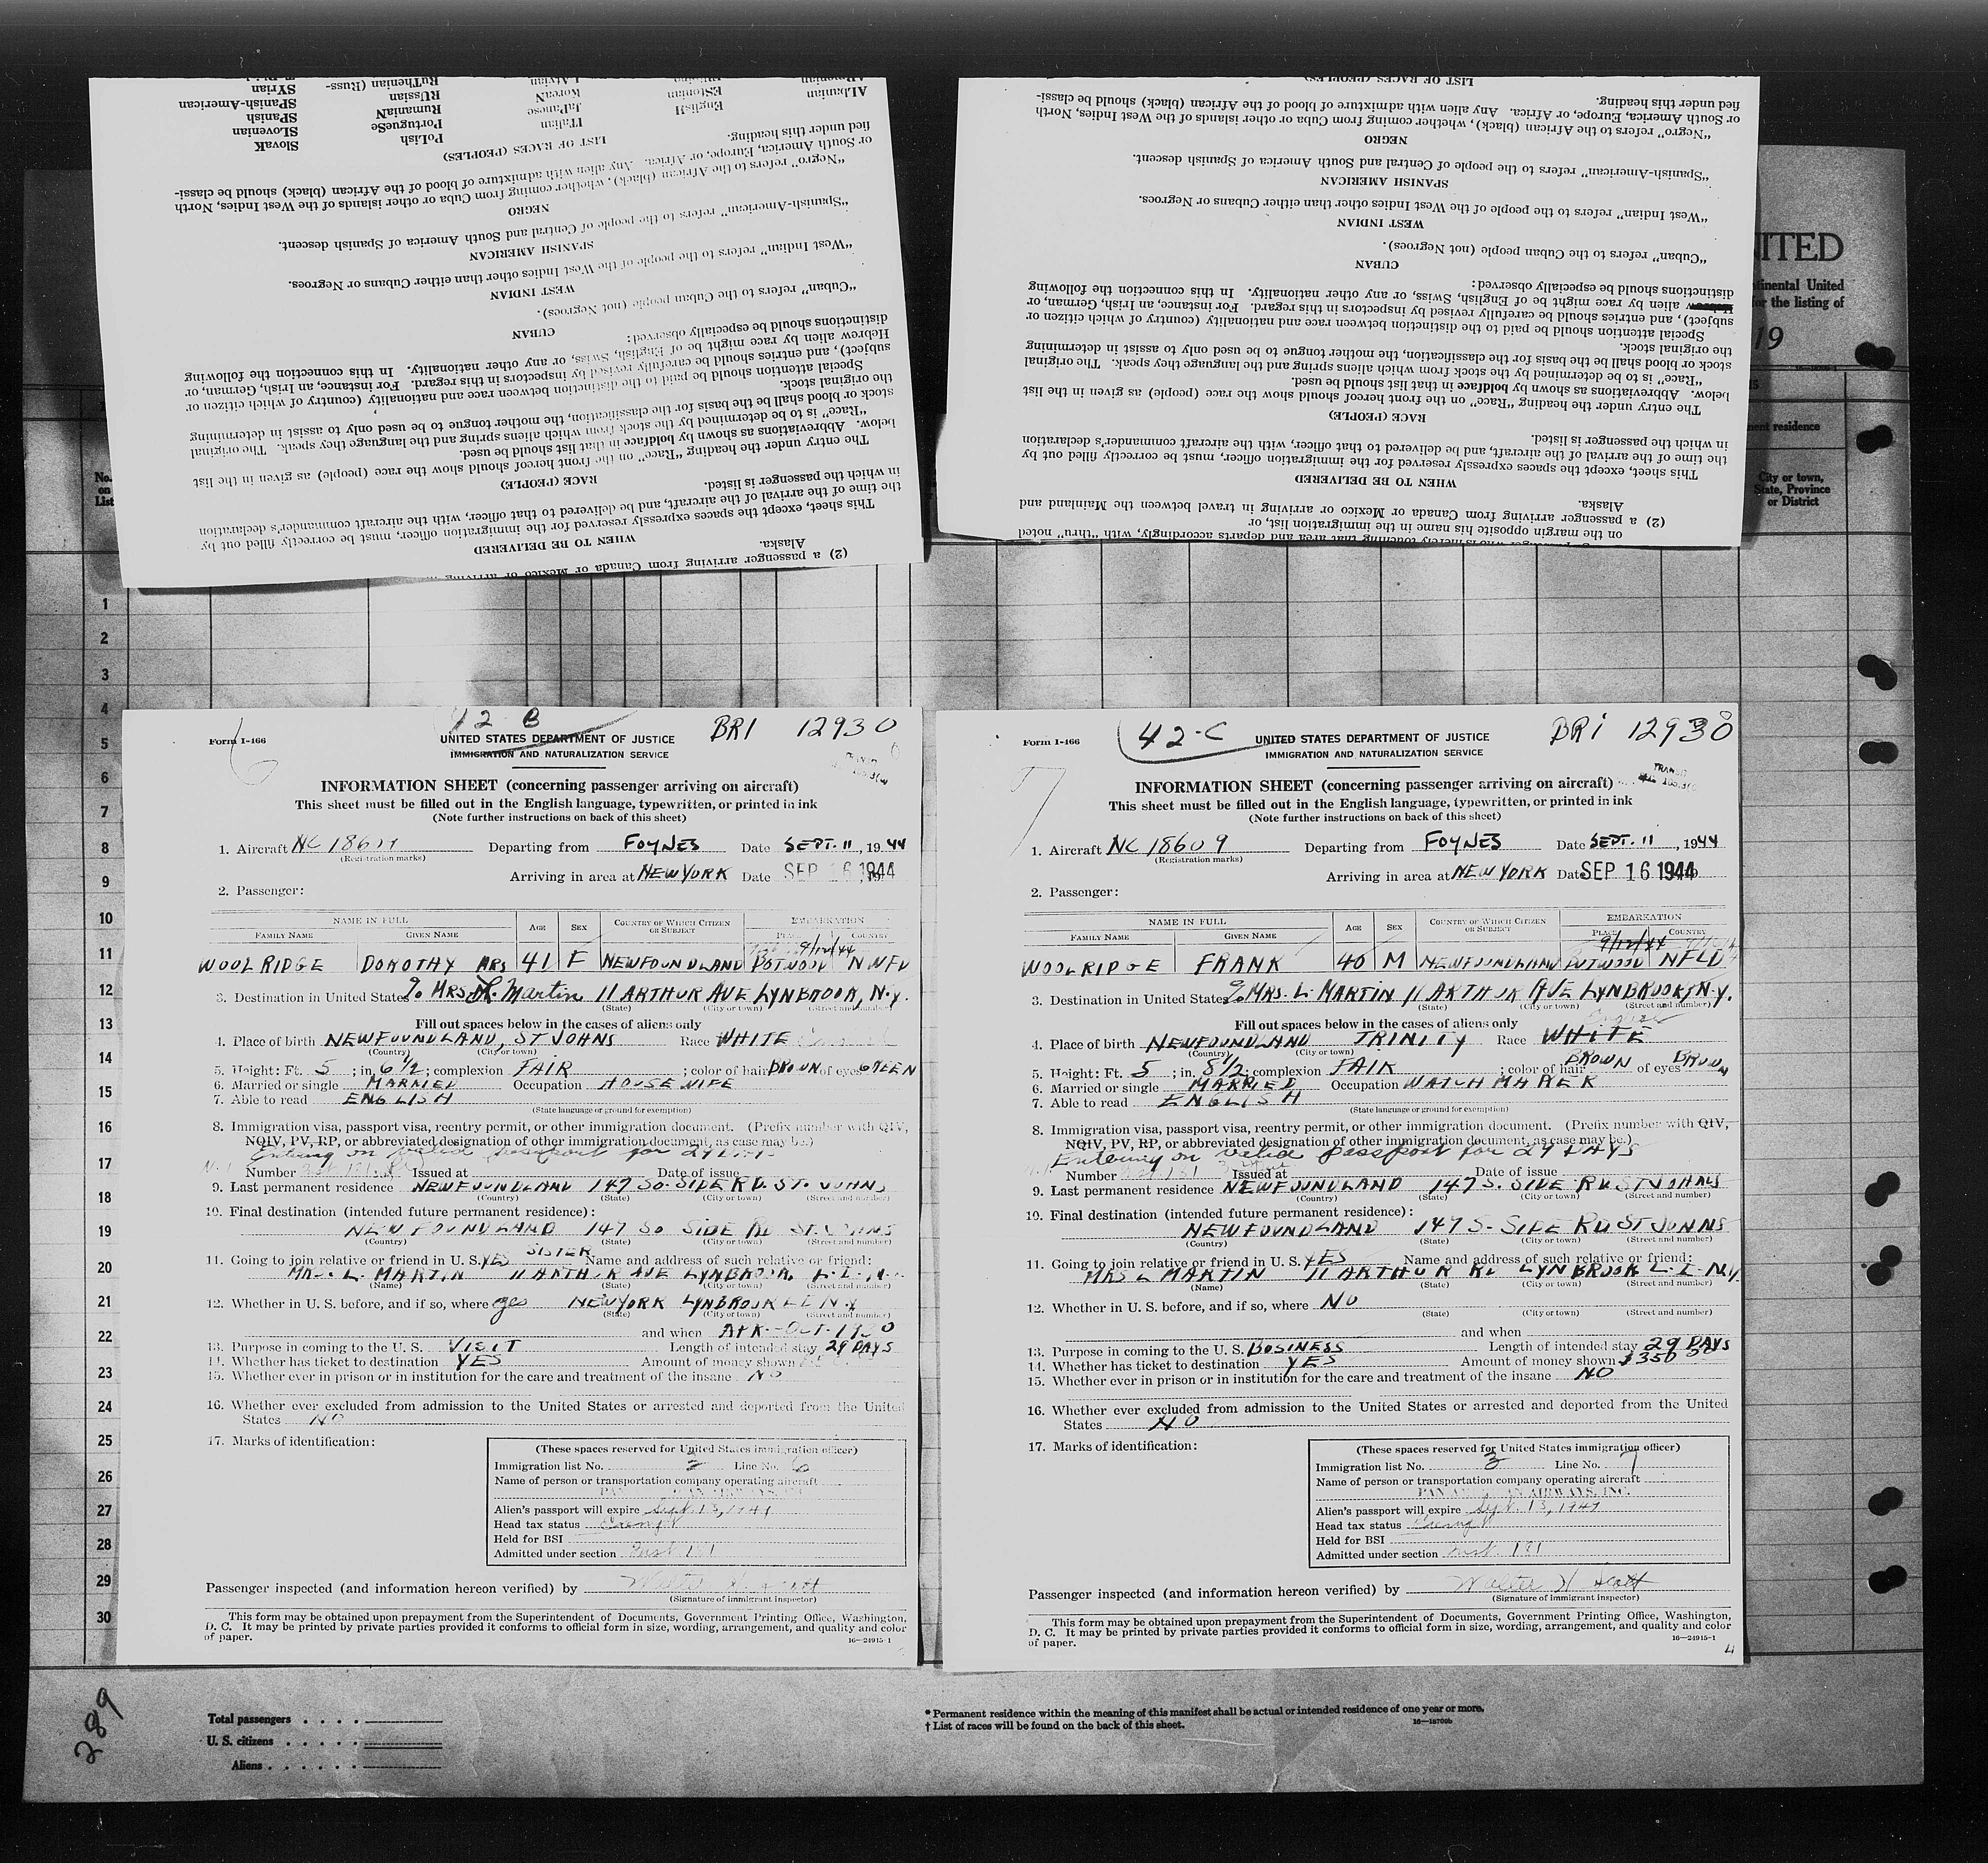 SlovaK
SLovenian
SPanish
SPanish-American
SYrian
PoLish
PortugueSe
RumaniaN
RUssian
RuThenian (Russ-
ITalian
JaPanese
KoreaN
LAtvian
EngliSH
EStonian
ALbanian
LIST OF RACES (PEOPLES)
fied under this heading.
or South America, Europe, or Africa. Any alien with admixture of blood of the African (black) should be classi-
"Negro" refers to the African (black), whether coming from Cuba or other islands of the West Indies, North
NEGRO
"Spanish-American" refers to the people of Central and South America of Spanish descent.
SPANISH AMERICAN
"West Indian" refers to the people of the West Indies other than either Cubans or Negroes.
WEST INDIAN
"Cuban" refers to the Cuban people (not Negroes).
CUBAN
distinctions should be especially observed:
Hebrew alien by race might be of English, Swiss, or any other nationality. In this connection the following
subject), and entries should be carefully revised by inspectors in this regard. For instance, an Irish, German, or
Special attention should be paid to the distinction between race and nationality (country of which citizen or
the original stock.
stock or blood shall be the basis for the classification, the mother tongue to be used only to assist in determining
"Race" is to be determined by the stock from which aliens spring and the language they speak. The original
below. Abbreviations as shown by boldface in that list should be used.
The entry under the heading "Race" on the front hereof should show the race (people) as given in the list
RACE (PEOPLE)
in which the passenger is listed.
the time of the arrival of the aircraft, and be delivered to that officer, with the aircraft commander's declaration
This sheet, except the spaces expressly reserved for the immigration officer, must be correctly filled out by
WHEN TO BE DELIVERED
Alaska.
(2) a passenger arriving from Canada or Mexico or arriving
LIST OF RACES (PEOPLES)
fied under this heading.
or South America, Europe, or Africa. Any alien with admixture of blood of the African (black) should be classi-
"Negro" refers to the African (black), whether coming from Cuba or other islands of the West Indies, North
NEGRO
"Spanish-American" refers to the people of Central and South America of Spanish descent.
SPANISH AMERICAN
"West Indian" refers to the people of the West Indies other than either Cubans or Negroes.
WEST INDIAN
"Cuban" refers to the Cuban people (not Negroes).
CUBAN
distinctions should be especially observed:
alien by race might be of English, Swiss, or any other nationality. In this connection the following
subject), and entries should be carefully revised by inspectors in this regard. For instance, an Irish, German, or
Special attention should be paid to the distinction between race and nationality (country of which citizen or
the original stock.
stock or blood shall be the basis for the classification, the mother tongue to be used only to assist in determining
"Race" is to be determined by the stock from which aliens spring and the language they speak. The original
below. Abbreviations as shown by boldface in that list should be used.
The entry under the heading "Race" on the front hereof should show the race (people) as given in the list
RACE (PEOPLE)
in which the passenger is listed.
the time of the arrival of the aircraft, and be delivered to that officer, with the aircraft commander's declaration
This sheet, except the spaces expressly reserved for the immigration officer, must be correctly filled out by
WHEN TO BE DELIVERED
Alaska.
(2) a passenger arriving from Canada or Mexico or arriving in travel between the Mainland and
on the margin opposite his name in the immigration list, or
who is merely touching that area and departs accordingly, with "thru" noted
NITED
tinental United
for the listing of
19
15
nent residence
City or town,
State, Province
or District
No.
on
List
1
2
3
4
5
6
7
8
9
10
11
12
13
14
15
16
17
18
19
20
21
22
23
24
25
26
27
28
29
30
42 B
6
Form I-466
UNITED STATES DEPARTMENT OF JUSTICE
BRI 12930
IMMIGRATION AND NATURALIZATION SERVICE
INFORMATION SHEET (concerning passenger arriving on aircraft)
This sheet must be filled out in the English language, typewritten, or printed in ink
(Note further instructions on back of this sheet)
1. Aircraft NC 18609 Departing from FOYNES Date SEPT. 11, 1944
(Registration marks)
Arriving in area at NEW YORK Date SEP 16 1944
2. Passenger:
NAME IN FULL AGE SEX COUNTRY OF WHICH CITIZEN OR SUBJECT EMBARKATION
FAMILY NAME GIVEN NAME PLACE COUNTRY
9/12/44
WOOLRIDGE DOROTHY MRS 41 F NEWFOUNDLAND BOTWOOD NWFD
3. Destination in United States % MRS L. Martin 11 ARTHUR AVE LYNBROOK, N.Y.
(State) (City or town) (Street and number)
Fill out spaces below in the cases of aliens only
4. Place of birth NEWFOUNDLAND, ST JOHNS Race WHITE
(Country) (City or town)
5. Height: Ft. 5; in 6 1/2; complexion FAIR; color of hair BROWN of eyes GREEN
6. Married or single MARRIED Occupation HOUSEWIFE
7. Able to read ENGLISH
(State language or ground for exemption)
8. Immigration visa, passport visa, reentry permit, or other immigration document. (Prefix number with QIV,
NQIV, PV, RP, or abbreviated designation of other immigration document, as case may be.)
Entering on valid passport for 29 DAYS
Number Issued at Date of issue
9. Last permanent residence NEWFOUNDLAND 147 SO. SIDE RD. ST. JOHNS
(Country) (State) (City or town) (Street and number)
10. Final destination (intended future permanent residence):
NEWFOUNDLAND 147 SO SIDE RD ST. JOHNS
(Country) (State) (City or town) (Street and number)
11. Going to join relative or friend in U.S. YES SISTER Name and address of such relative or friend:
MRS. L. MARTIN 11 ARTHUR AVE LYNBROOK, L.I., N.Y.
(Name) (State) (City or town) (Street and number)
12. Whether in U. S. before, and if so, where yes NEW YORK LYNBROOK L I N.Y
(State) (City or town) (Street and number)
and when APR.-OCT. 1930
13. Purpose in coming to the U. S. VISIT Length of intended stay 29 DAYS
14. Whether has ticket to destination YES Amount of money shown
15. Whether ever in prison or in institution for the care and treatment of the insane NO
16. Whether ever excluded from admission to the United States or arrested and deported from the United
States NO
17. Marks of identification:
(These spaces reserved for United States immigration officer)
Immigration list No. 3 Line No. 6
Name of person or transportation company operating aircraft
Alien's passport will expire Sept. 13, 1947
Head tax status Exempt
Held for BSI
Admitted under section Inst. 171
Passenger inspected (and information hereon verified) by Walter H Scott
(Signature of immigrant inspector)
This form may be obtained upon prepayment from the Superintendent of Documents, Government Printing Office, Washington,
D. C. It may be printed by private parties provided it conforms to official form in size, wording, arrangement, and quality and color
of paper.
16—24915-1
42-C
7
Form I-466
UNITED STATES DEPARTMENT OF JUSTICE
BRI 12930
IMMIGRATION AND NATURALIZATION SERVICE
TRANSIT
INFORMATION SHEET (concerning passenger arriving on aircraft)
This sheet must be filled out in the English language, typewritten, or printed in ink
(Note further instructions on back of this sheet)
1. Aircraft NC 18609 Departing from FOYNES Date SEPT. 11, 1944
(Registration marks)
Arriving in area at NEW YORK Date SEP 16 1944
2. Passenger:
NAME IN FULL AGE SEX COUNTRY OF WHICH CITIZEN OR SUBJECT EMBARKATION
FAMILY NAME GIVEN NAME PLACE COUNTRY
9/12/44
WOOLRIDGE FRANK 40 M NEWFOUNDLAND BOTWOOD NFLD
3. Destination in United States % MRS. L. MARTIN 11 ARTHUR AVE LYNBROOK, N.Y.
(State) (City or town) (Street and number)
Fill out spaces below in the cases of aliens only
English
4. Place of birth NEWFOUNDLAND TRINITY Race WHITE
(Country) (City or town)
5. Height: Ft. 5; in. 8 1/2; complexion FAIR; color of hair BROWN of eyes BROWN
6. Married or single MARRIED Occupation WATCH MAKER
7. Able to read ENGLISH
(State language or ground for exemption)
8. Immigration visa, passport visa, reentry permit, or other immigration document. (Prefix number with QIV,
NQIV, PV, RP, or abbreviated designation of other immigration document, as case may be.)
Entering on valid passport for 29 DAYS
Number Issued at Date of issue
9. Last permanent residence NEWFOUNDLAND 147 S. SIDE RD ST JOHNS
(Country) (State) (City or town) (Street and number)
10. Final destination (intended future permanent residence):
NEWFOUNDLAND 147 S- SIDE RD ST JOHNS
(Country) (State) (City or town) (Street and number)
11. Going to join relative or friend in U. S. YES Name and address of such relative or friend:
MRS L MARTIN 11 ARTHUR RD LYNBROOK L-I- N.Y.
(Name) (State) (City or town) (Street and number)
12. Whether in U. S. before, and if so, where NO
(State) (City or town) (Street and number)
and when
13. Purpose in coming to the U. S. BUSINESS Length of intended stay 29 DAYS
14. Whether has ticket to destination YES Amount of money shown $350 00
15. Whether ever in prison or in institution for the care and treatment of the insane NO
16. Whether ever excluded from admission to the United States or arrested and deported from the United
States NO
17. Marks of identification:
(These spaces reserved for United States immigration officer)
Immigration list No. 3 Line No. 7
Name of person or transportation company operating aircraft
PAN AMERICAN AIRWAYS, INC.
Alien's passport will expire Sept. 13, 1947
Head tax status Exempt
Held for BSI
Admitted under section Inst. 171
Passenger inspected (and information hereon verified) by Walter H Scott
(Signature of immigrant inspector)
This form may be obtained upon prepayment from the Superintendent of Documents, Government Printing Office, Washington,
D. C. It may be printed by private parties provided it conforms to official form in size, wording, arrangement, and quality and color
of paper.
16—24915-1
289
Total passengers
U. S. citizens
Aliens
* Permanent residence within the meaning of this manifest shall be actual or intended residence of one year or more.
† List of races will be found on the back of this sheet.
16—18700b